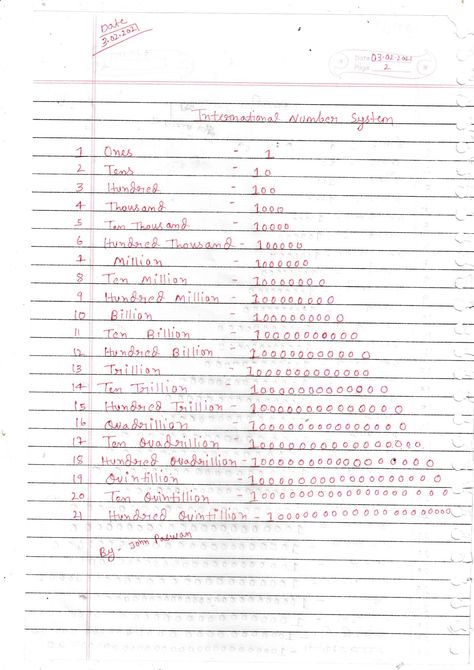 Date
3-02-2021
Date 03-02-2021
Page 2
International Number System
1 Ones - 1
2 Tens - 10
3 Hundred - 100
4 Thousand - 1000
5 Ten Thousand - 10000
6 Hundred Thousand - 100000
7 Million - 1000000
8 Ten Million - 10000000
9 Hundred Million - 100000000
10 Billion - 1000000000
11 Ten Billion - 10000000000
12 Hundred Billion - 100000000000
13 Trillion - 1000000000000
14 Ten Trillion - 10000000000000
15 Hundred Trillion - 100000000000000
16 Quadrillion - 1000000000000000
17 Ten Quadrillion - 10000000000000000
18 Hundred Quadrillion - 100000000000000000
19 Quintillion - 1000000000000000000
20 Ten Quintillion - 10000000000000000000
21 Hundred Quintillion - 100000000000000000000
By - John Paswan